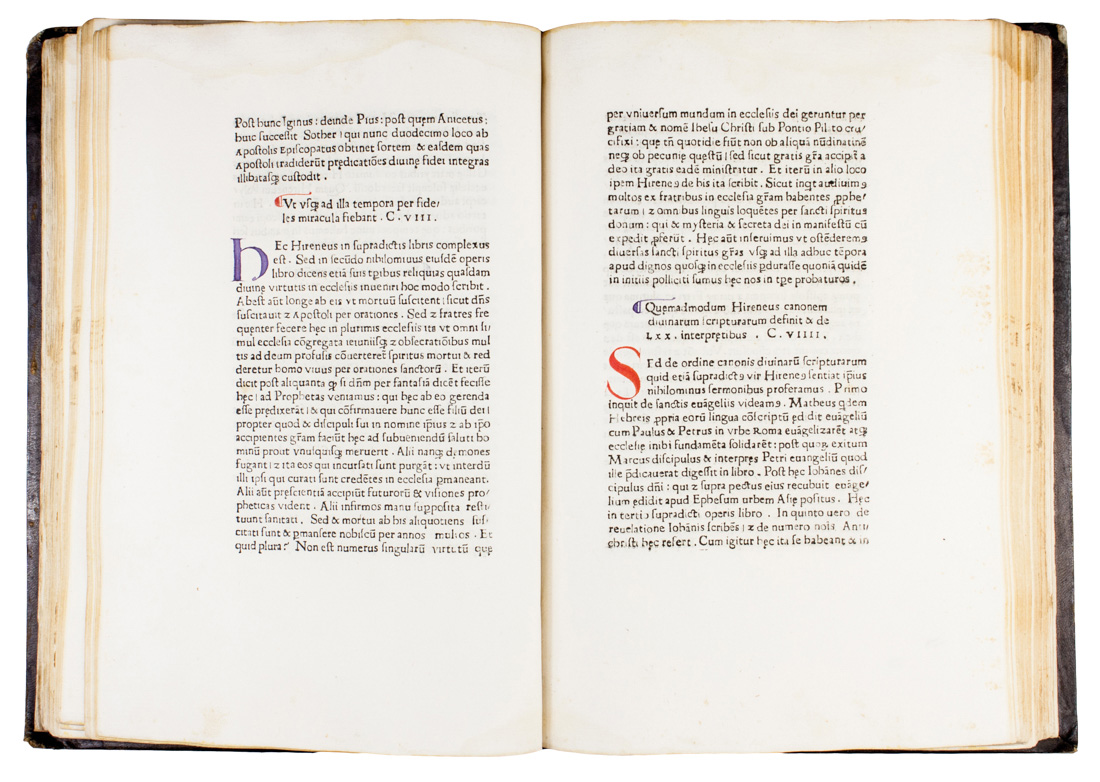 Post hunc Iginus: deinde Pius: post quem Anicetus:
huic successit Sother ı qui nunc duodecimo loco ab
Apostolis Episcopatus obtinet sortem & easdem quas
Apostoli tradiderūt prędicatiōes diuinę fidei integras
illibatasqꝫ custodit .
¶Vt vsqꝫ ad illa tempora per fide/
les miracula fiebant . C . VIII .
hEc Hireneus in supradictis libris complexus
est . Sed in secūdo nihilominus eiusdē operis
libro dicens etiā suis tꝑibus reliquias quasdam
diuinę virtutis in ecclesiis inueniri hoc modo scribit .
Abest aūt longe ab eis vt mortuū suscitent ı sicut dn̄s
suscitauit ⁊ Apostoli per orationes . Sed ⁊ fratres fre
quenter fecere hęc in plurimis ecclesiis ita vt omni si/
mul ecclesia cōgregata ieiuniisqꝫ ⁊ obsecratiōibus mul
tis ad deum profusis cōuerteret spiritus mortui & red
deretur homo viuus per orationes sanctorū . Et iterū
dicit post aliquanta qꝫ si dn̄m per fantasiā dicēt fecisse
hęc ı ad Prophetas veniamus : qui hęc ab eo gerenda
esse prędixerāt ı & qui cōfirmauere hunc esse filiū dei ı
propter quod & discipuli sui in nomine ip̄ius ⁊ ab ip̄o
accipientes gr̄am faciūt hęc ad subueniendū saluti ho
minū prout vnulquisqꝫ meruerit . Alii nanqꝫ dęmones
fugant ı ⁊ ita eos qui incursati sunt purgāt : vt interdū
illi ip̄si qui curati sunt credētes in ecclesia ꝑmaneant .
Alii aūt pręscientiā accipiūt futurorū & visiones pro/
pheticas vident . Alii infirmos manu supposita resti/
tuunt sanitati . Sed & mortui ab his aliquotiens sus/
citati sunt & ꝑmansere nobiscū per annos multos . Et
quid plura? Non est numerus singularū virtutū quę
per vniuersum mundum in ecclesiis dei geruntur per
gratiam & nomē Ihesu Christi sub Pontio Pilato cru/
cifixi : quę tn̄ quotidie fiūt non ob aliquā nūdinatinē
neqꝫ ob pecunię quęstū ı sed sicut gratis gr̄a accipit̄ a
deo ita gratis eadē ministratur . Et iterū in alio loco
ipem Hireneꝰ de his ita scribit . Sicut inqt audiuimꝰ
multos ex fratribus in ecclesia gr̄am habentes ꝓphe/
tarum ı ⁊ omnibus linguis loquētes per sancti spiritus
donum : qui & mysteria & secreta dei in manifestū cū
expedit ꝓferūt . Hęc aūt inseruimus vt ostēderemꝰ
diuersas sancti spiritus gr̄as vsqꝫ ad illa adhuc tēpora
apud dignos quosqꝫ in ecclesiis ꝑdurasse quoniā quidē
in initiis polliciti sumus hęc nos in tꝑe probaturos .
¶Quemadmodum Hireneus canonem
diuinarum scripturarum definit & de
LXX . interpretibus . C . VIIII .
SEd de ordine canonis diuinarū scripturarum
quid etiā supradictꝰ vir Hireneꝰ sentiat ip̄ius
nihilominus sermonibus proferamus . Primo
inquit de sanctis euāgeliis videamꝰ . Matheus qdem
Hebreis ꝓpria eorū lingua cōscriptū edidit euāgeliū
cum Paulus & Petrus in vrbe Roma euāgelizarēt atqꝫ
ecclesię inibi fundamēta solidarēt : post quoꝝ exitum
Marcus discipulus & interpres Petri euangeliū quod
ille pdicauerat digessit in libro . Post hęc Iohānes dis/
cipulus dn̄i : qui ⁊ supra pectus eius recubuit euāge/
lium ędidit apud Ephesum urbem Asię positus . Hęc
in tertio supradicti operis libro . In quinto uero de
reuelatione Iohānis scribēs ı ⁊ de numero nois Anti/
christi hęc refert . Cum igitur hęc ita se habeant & in